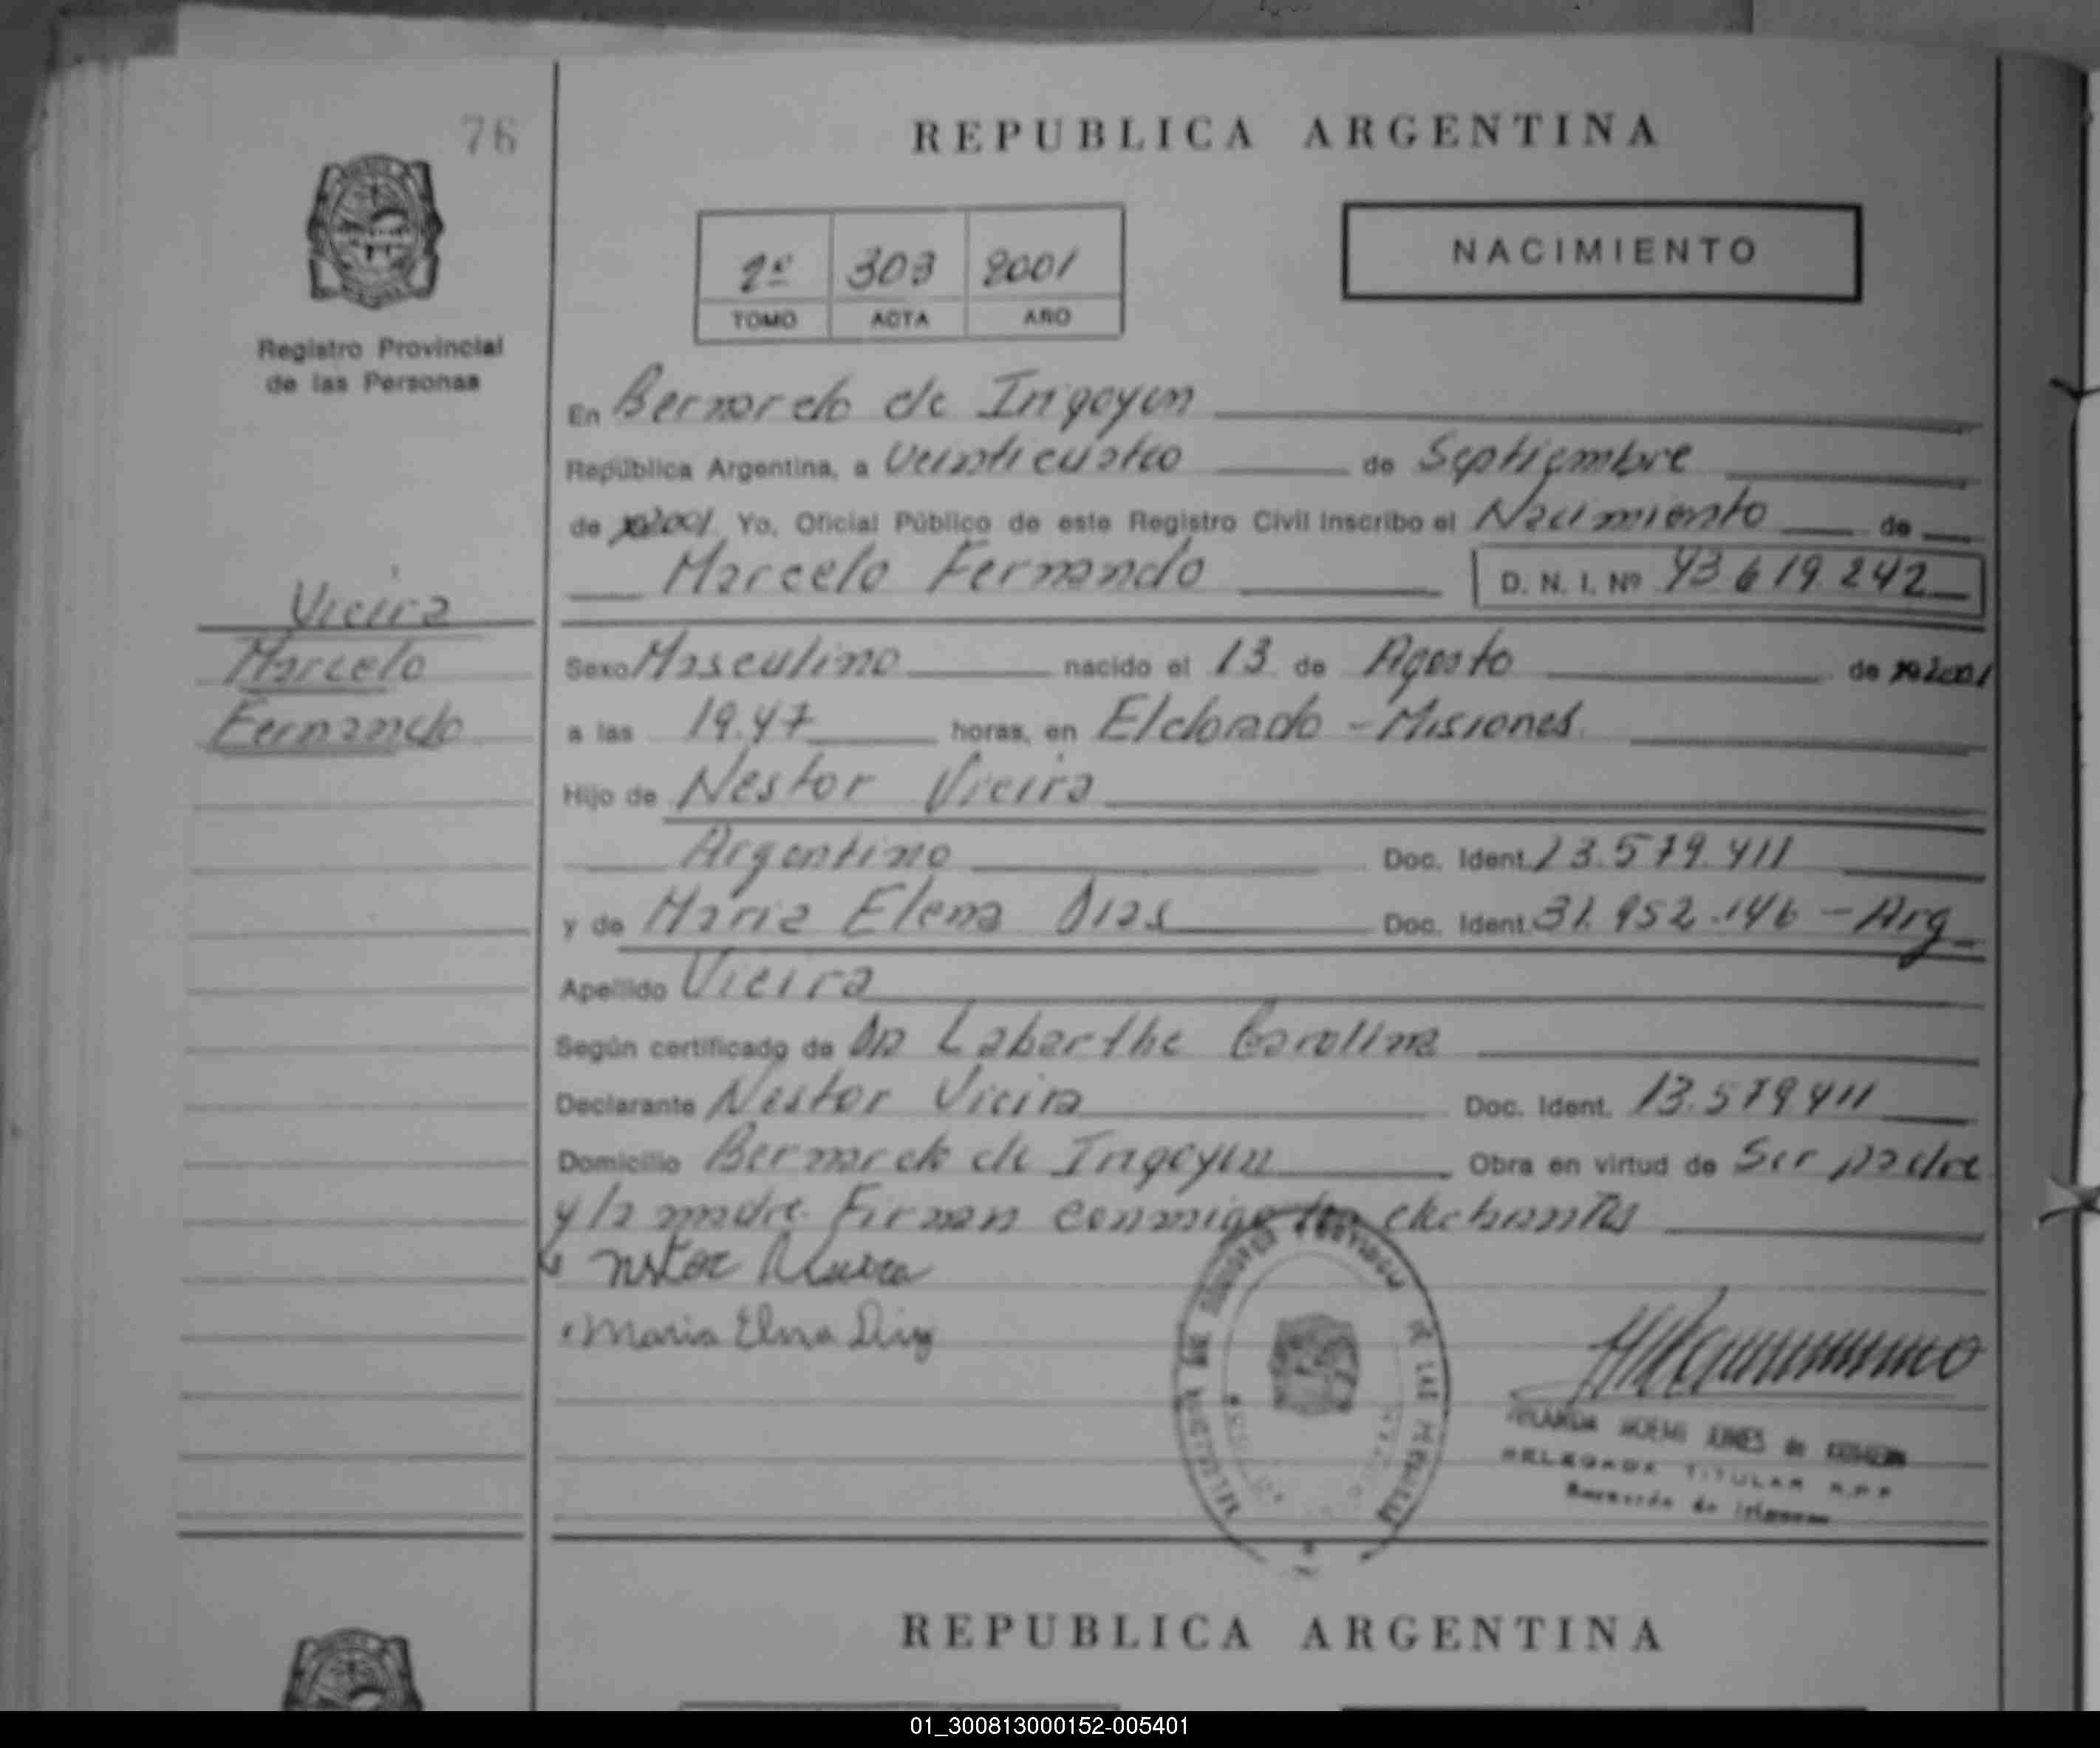 76
REPUBLICA ARGENTINA
2º 303 2001
TOMO ACTA AÑO
NACIMIENTO
Registro Provincial
de las Personas
En Bernardo de Irigoyen
República Argentina, a Veinticuatro de Septiembre
de 2001 Yo, Oficial Público de este Registro Civil Inscribo el Nacimiento de
Marcelo Fernando D. N. I. Nº 43 619.242
Vieira
Marcelo
Fernando
Sexo Masculino nacido el 13 de Agosto de 2001
a las 19.47 horas, en Eldorado - Misiones
Hijo de Nestor Vieira
Argentino Doc. Ident. 13.579.411
y de Maria Elena Dias Doc. Ident. 31.952.146 - Arg
Apellido Vieira
Según certificado de Dra Labarthe Carolina
Declarante Nestor Vieira Doc. Ident. 13.579411
Domicilio Bernardo de Irigoyen Obra en virtud de Ser padre
y la madre. Firman conmigo los declarantes
Maria Elena
DE LAS
NOEMI de
DELEGADA TITULAR R.P.P
Bernardo de Irigoyen
REPUBLICA ARGENTINA
01_300813000152-005401